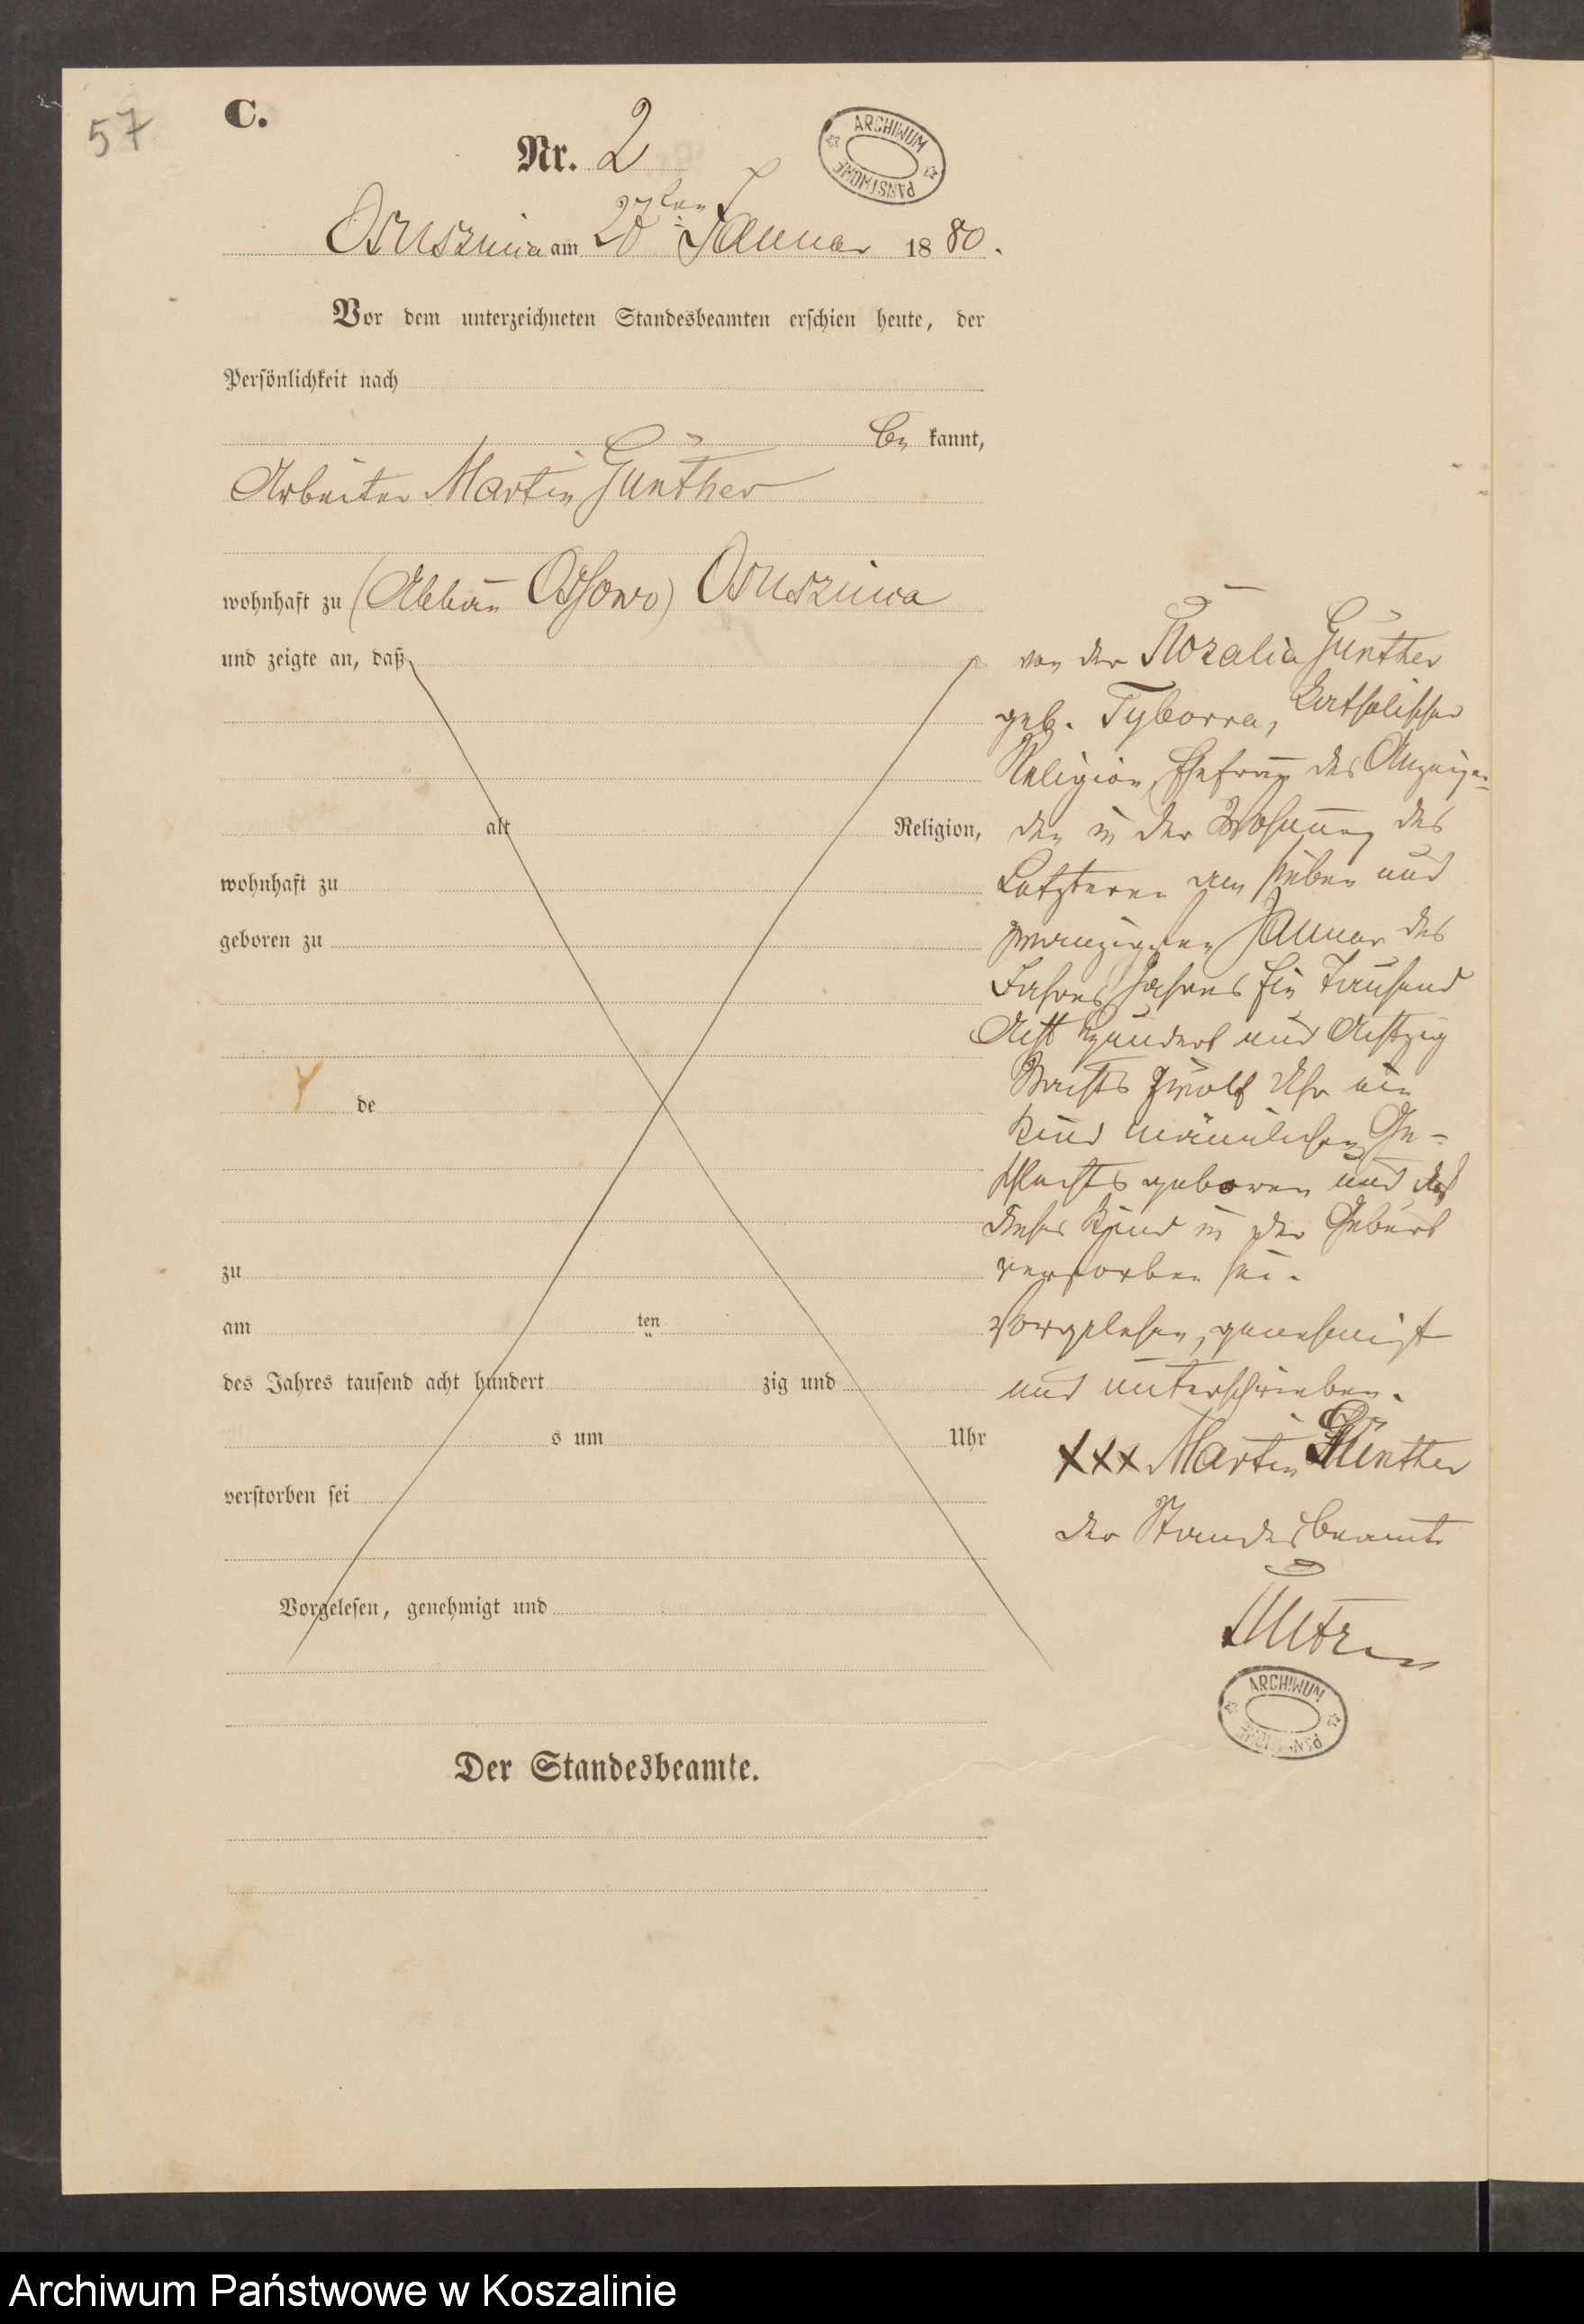 57
C.
Nr. 2
ARCHIWUM PAŃSTWOWE
Osusznica am 28ten Januar 1880.
Vor dem unterzeichneten Standesbeamten erschien heute, der
Persönlichkeit nach
be kannt,
Arbeiter Martin Günther
wohnhaft zu (Abbau Ossowo) Osusznica
und zeigte an, daß
alt Religion,
wohnhaft zu
geboren zu
de
zu
am ten
des Jahres tausend acht hundert zig und
s um Uhr
verstorben sei
Vorgelesen, genehmigt und
Der Standesbeamte.
von der Rozalia Günther
geb. Tyborra, katholischer
Religion, Ehefrau des Anzeigen-
den in der Wohnung des
Letzteren am sieben und
zwanzigsten Januar des
Jahres Ein Tausend
Acht Hundert und Achtzig
Nachts zwölf Uhr ein
Kind männlichen Ge-
schlechts geboren und daß
dieses Kind in der Geburt
verstorben sei.
Vorgelesen, genehmigt
und unterschrieben.
XXX Martin Günther
Der Standesbeamte
ARCHIWUM PAŃSTWOWE
Archiwum Państwowe w Koszalinie